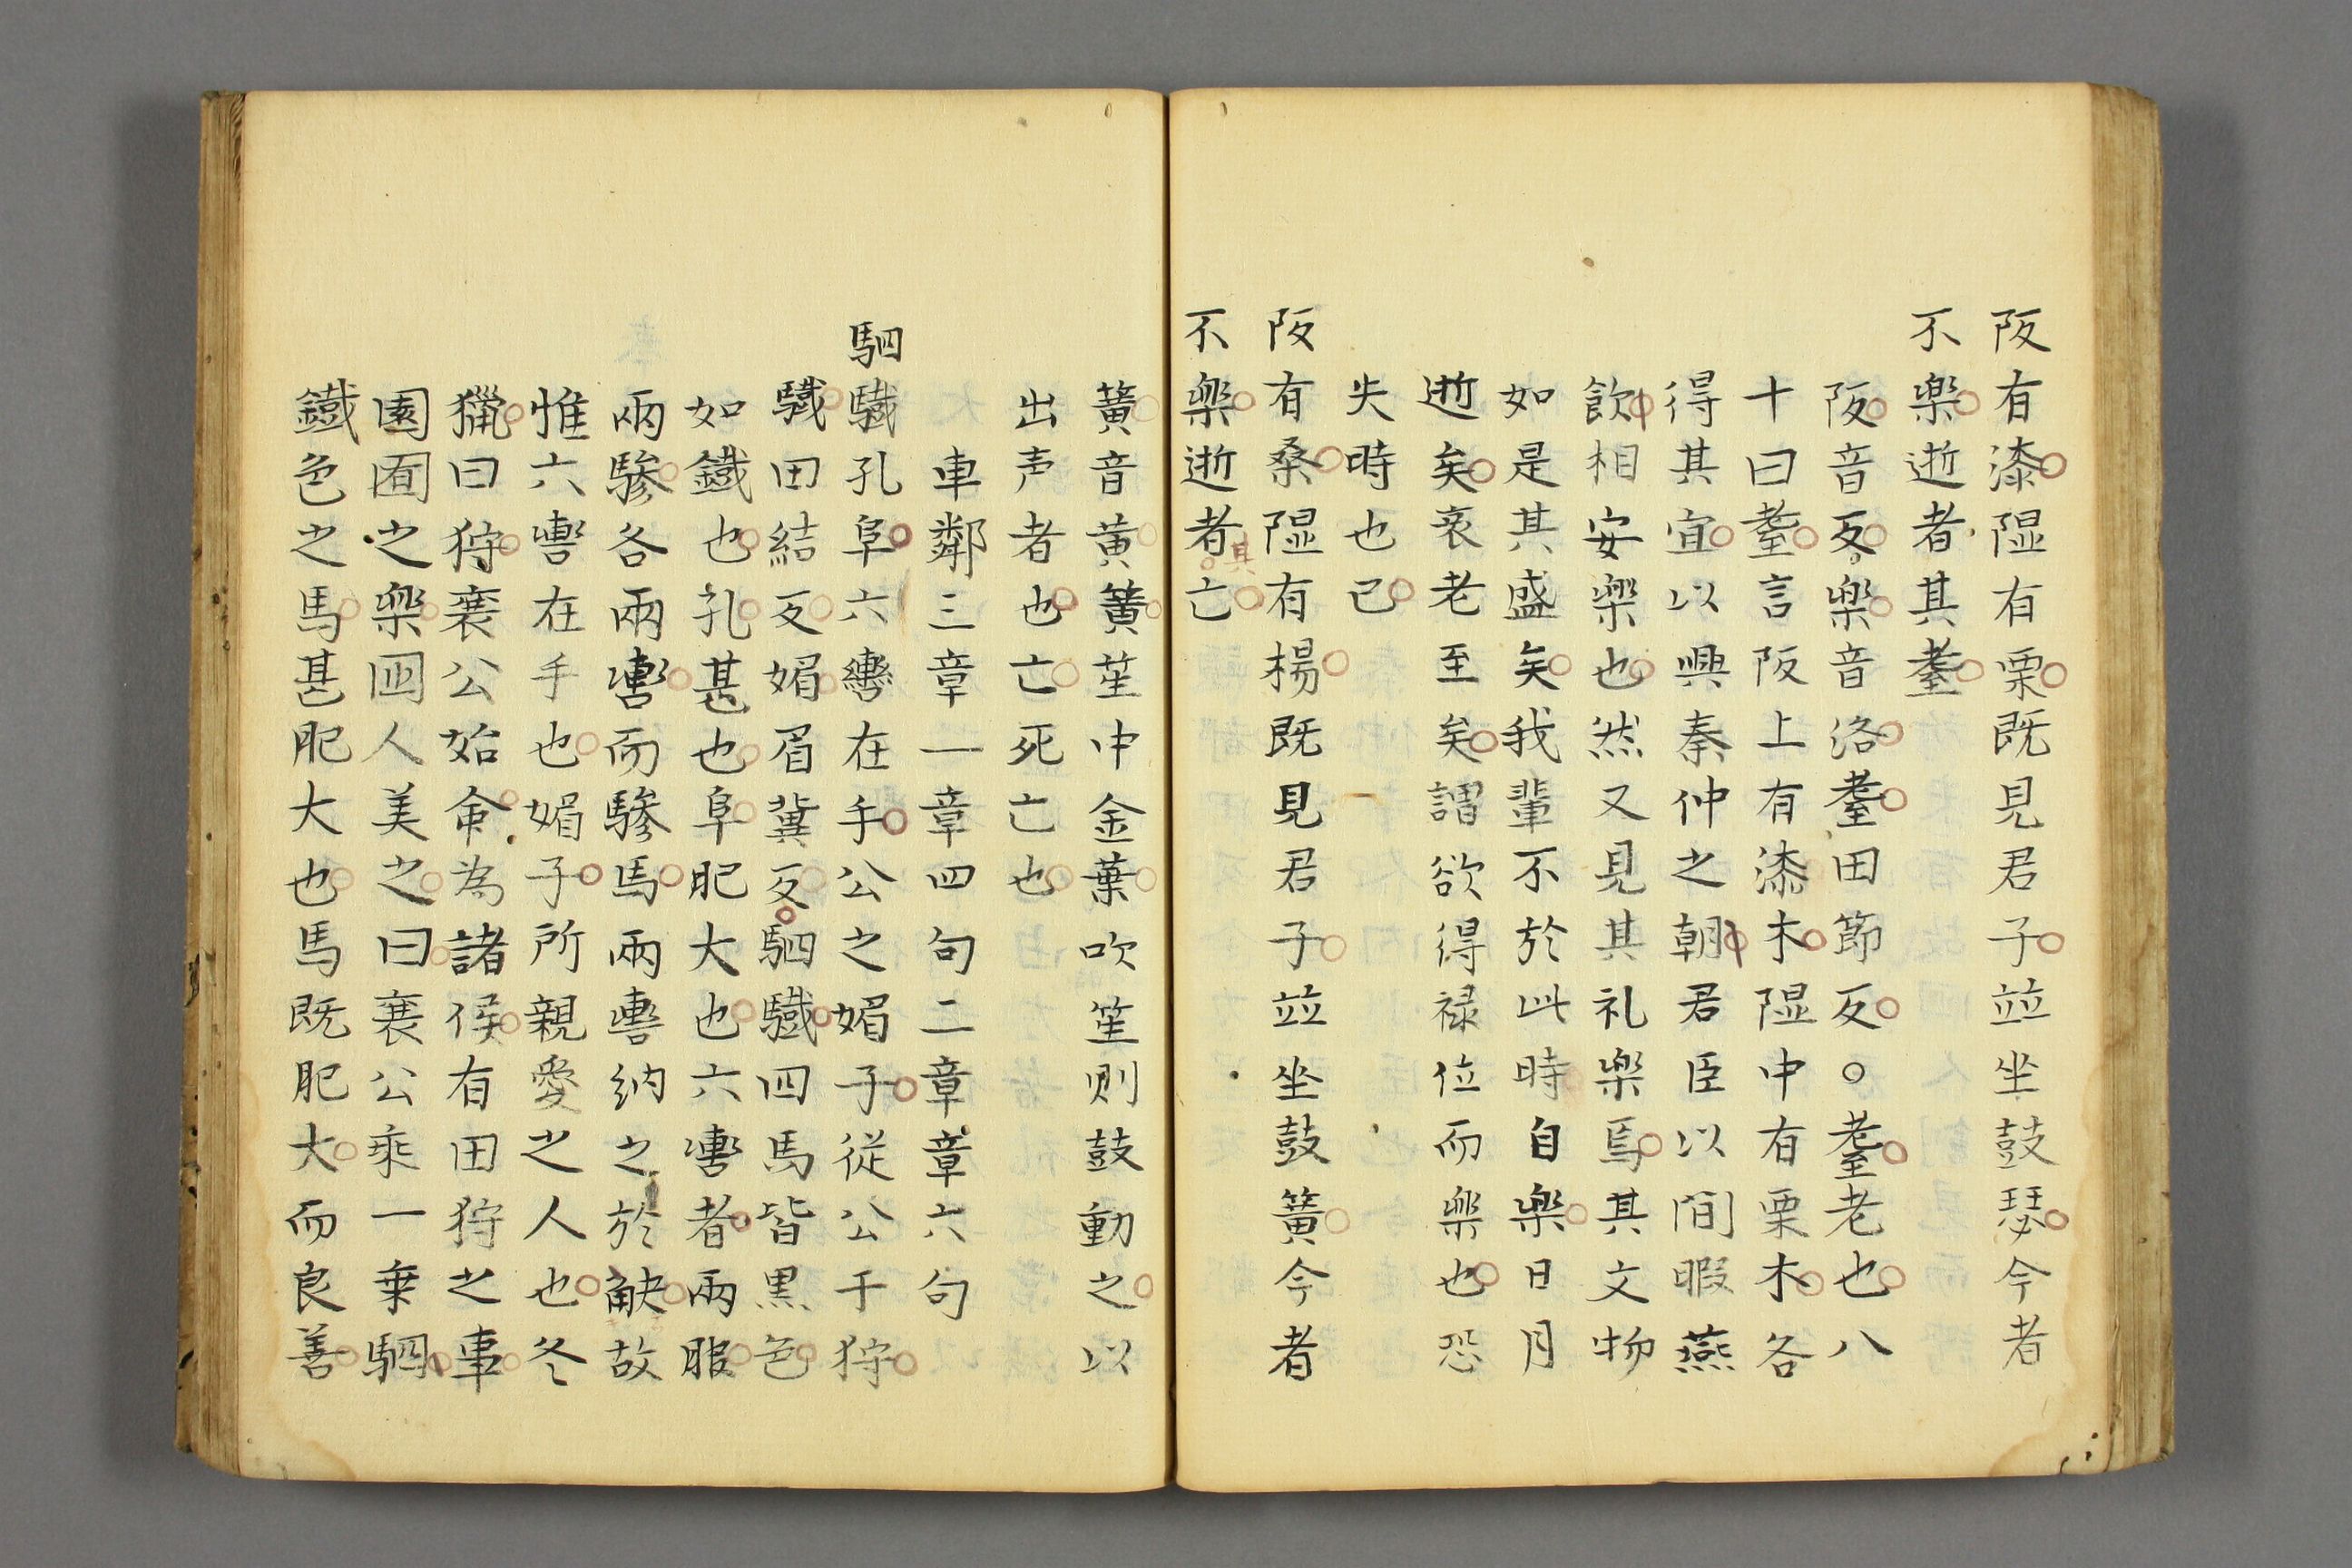 阪有漆隰有栗既見君子竝坐鼓瑟今者
不樂逝者其耋
阪音反樂音洛耋田節反○耋老也八
十曰耋言阪上有漆木隰中有栗木各
得其宜以興秦仲之朝君臣以間暇燕
飲相安樂也然又見其礼樂焉其文物
如是其盛矣我輩不於此時自樂日月
逝矣衰老至矣謂欲得禄位而樂也恐
失時也已
阪有桑隰有楊既見君子竝坐鼓簧今者
不樂逝者其亡
簧音黄簧笙中金葉吹笙則鼓動之以
出声者也亡死亡也
車鄰三章一章四句二章章六句
駟驖孔阜六轡在手公之媚子從公于狩
驖田結反媚眉冀反駟驖四馬皆黒色
如鐵也孔甚也阜肥大也六轡者兩服
兩驂各兩轡而驂馬兩轡納之於觖故
惟六轡在手也媚子所親愛之人也冬
獵曰狩襄公始命為諸侯有田狩之事
園囿之樂國人美之曰襄公乘一乗駟
鐵色之馬甚肥大也馬既肥大而良善